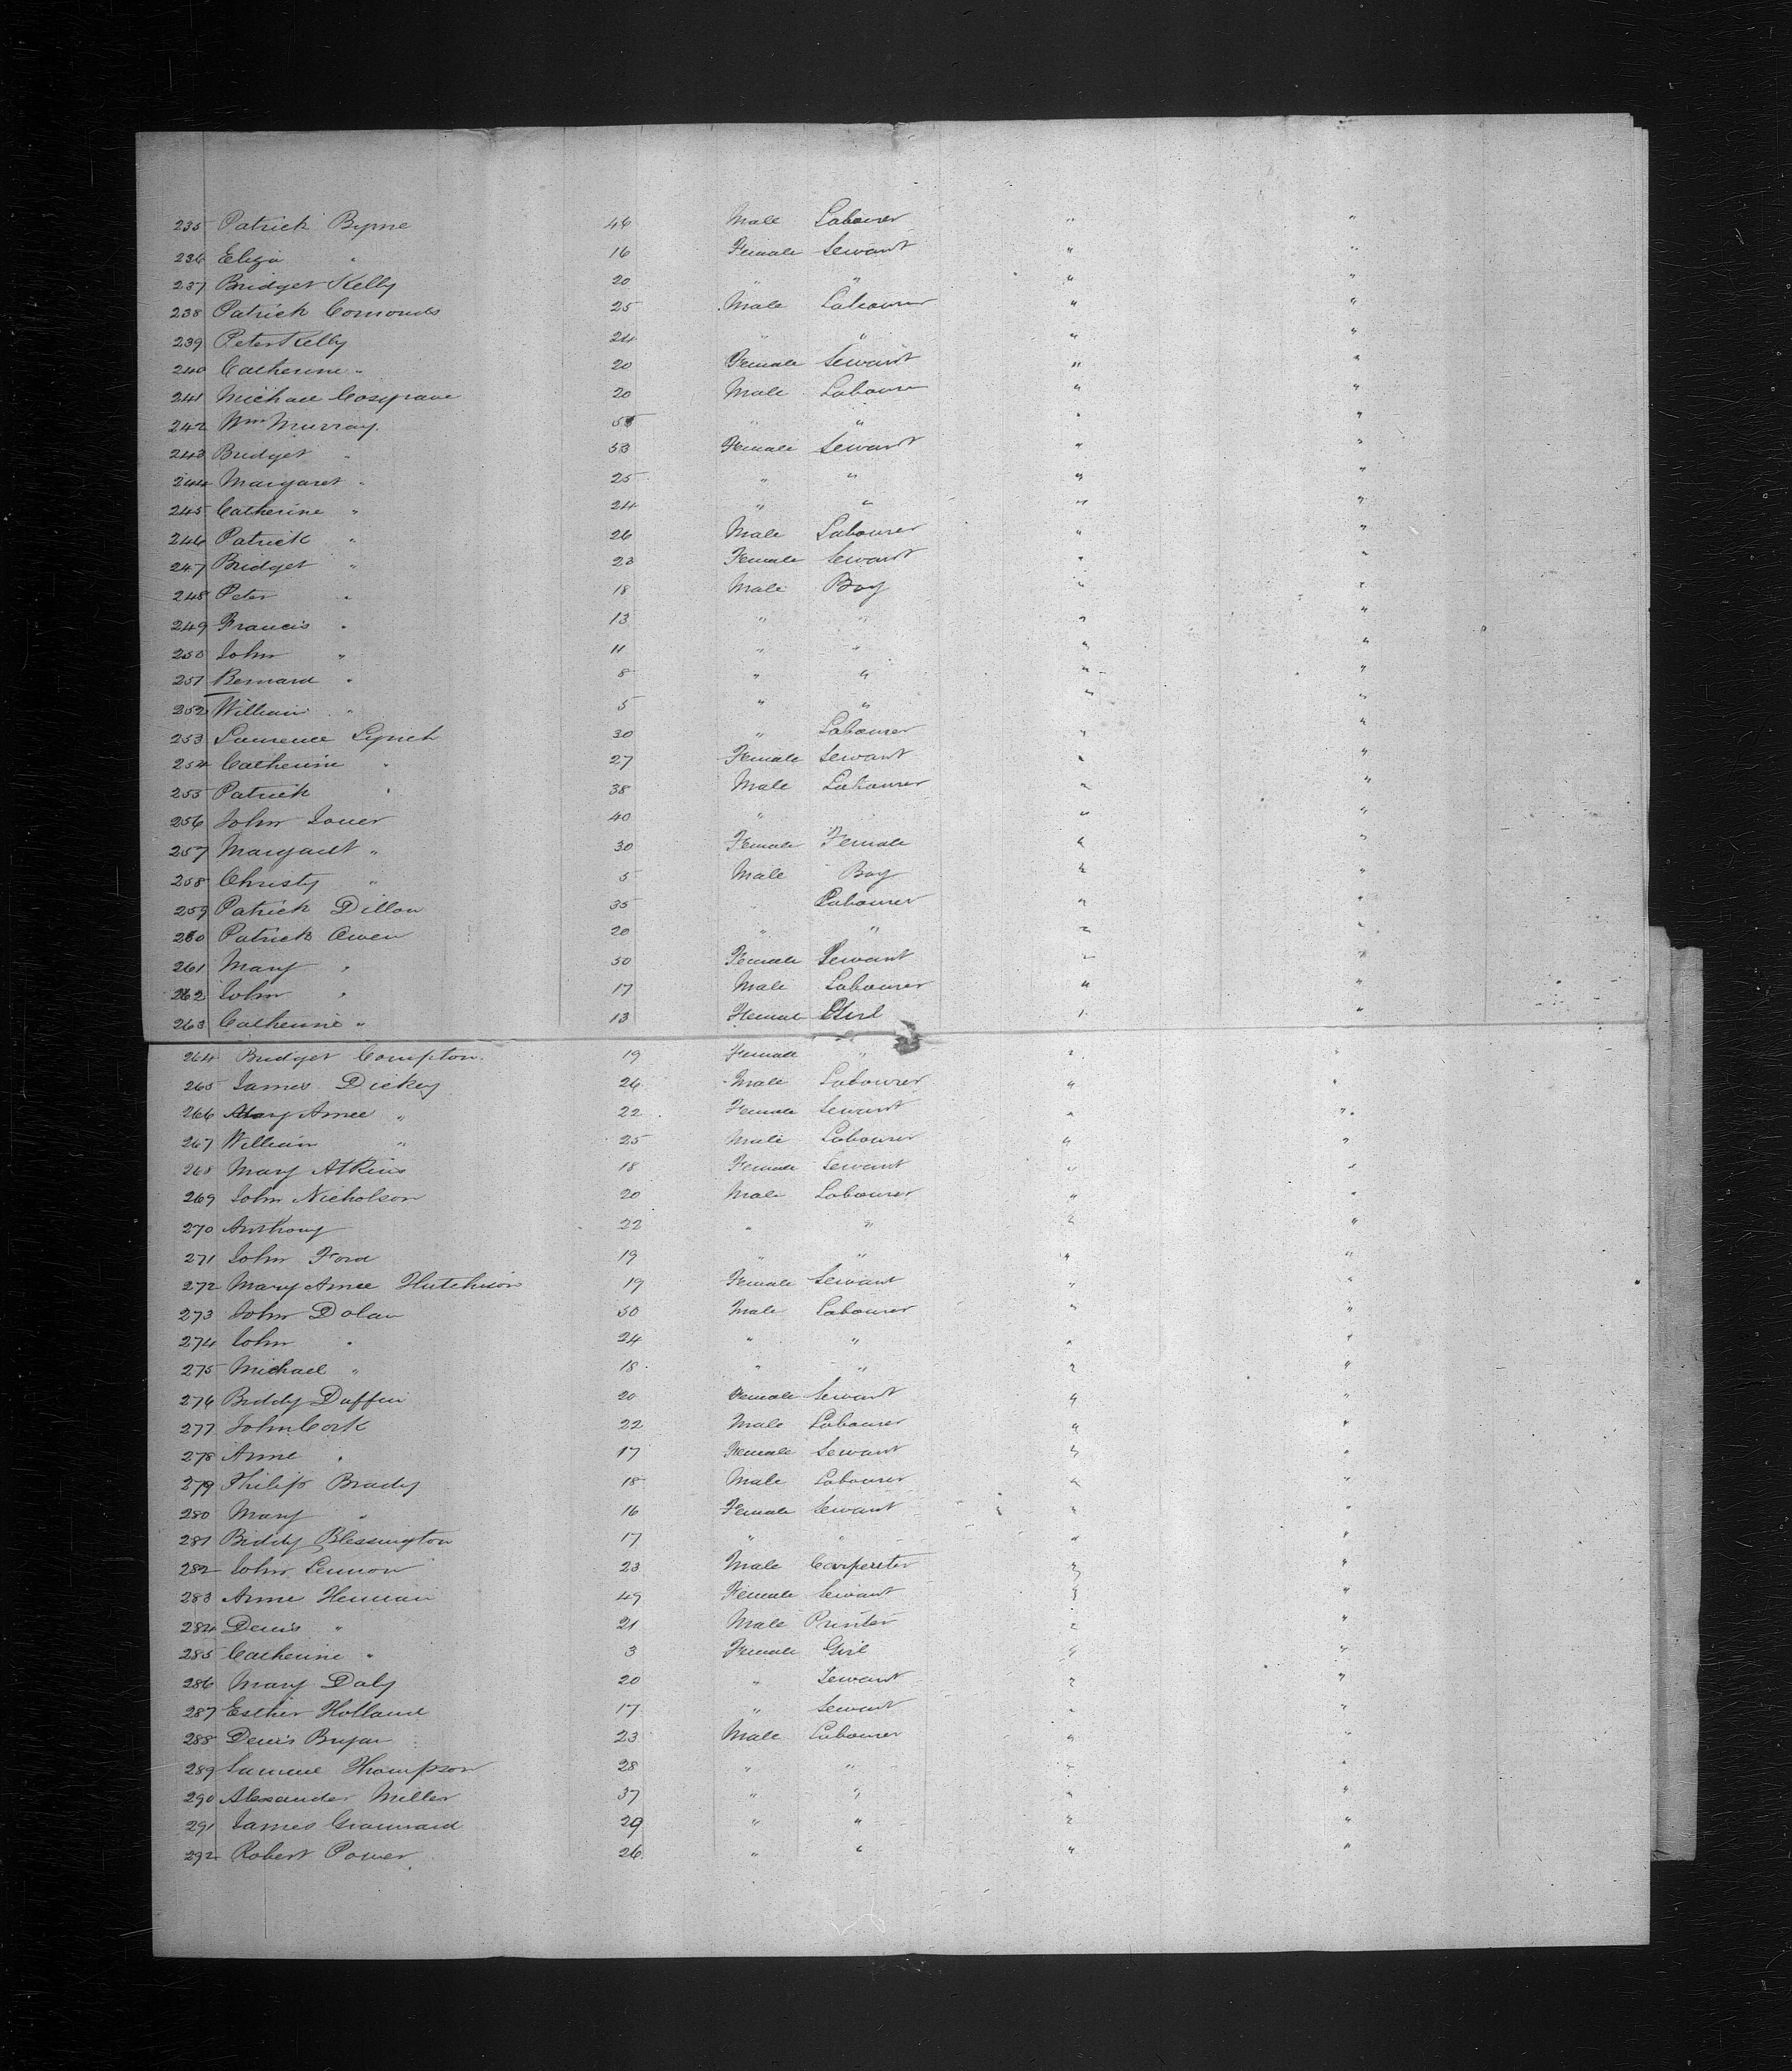 235 Patrick Byrne 46 Male Labourer " "
236 Eliza " 16 Female Servant " "
237 Bridget Kelly 20 " " " "
238 Patrick 25 Male Labourer " "
239 Peter Kelly 24 " " " "
240 Catherine " 20 Female Servant " "
241 Michael Cosgrave 20 Male Labourer " "
242 Wm Murray " " " "
243 Bridget " 53 Female Servant " "
244 Margaret " 25 " " " "
245 Catherine " 24 " " " "
246 Patrick " 26 Male Labourer " "
247 Bridget " 23 Female Servant " "
248 Peter " 18 Male Boy " "
249 Francis " 13 " " " "
250 John " 11 " " " "
251 Bernard " 8 " " " "
252 William " 5 " " " "
253 Laurence Lynch 30 " Labourer " "
254 Catherine " 27 Female Servant " "
255 Patrick " 38 Male Labourer " "
256 John 40 " " "
257 Margaret " 30 Female Female " "
258 Christy " 5 Male Boy " "
259 Patrick Dillon 35 " Labourer " "
260 Patrick Owen 20 " " " "
261 Mary " 50 Female Servant " "
262 John " 17 Male Labourer " "
263 Catherine " 13 Female Girl " "
264 Bridget Compton 19 Female " " "
265 James Dickey 26 Male Labourer " "
266 Mary Anne " 22 Female Servant " "
267 William " 25 Male Labourer " "
268 Mary Atkins 18 Female Servant " "
269 John Nicholson 20 Male Labourer " "
270 Anthony 22 " " " "
271 John Ford 19 " " " "
272 Mary Anne Hutchison 19 Female Servant " "
273 John Dolan 50 Male Labourer " "
274 John " 24 " " " "
275 Michael " 18 " " " "
276 Biddy Duffin 20 Female Servant " "
277 John Cork 22 Male Labourer " "
278 Anne " 17 Female Servant " "
279 Philip Brady 18 Male Labourer " "
280 Mary " 16 Female Servant " "
281 Biddy Blessington 17 " " " "
282 John Lennon 23 Male Carpenter " "
283 Anne Heenan 49 Female Servant " "
284 Denis " 21 Male Printer " "
285 Catherine " 3 Female Girl " "
286 Mary Daly 20 " Servant " "
287 Esther Holland 17 " Servant " "
288 Denis Bryan 23 Male Labourer " "
289 Samuel Thompson 28 " " " "
290 Alexander Miller 37 " " " "
291 James 29 " " " "
292 Robert Power 26 " " " "